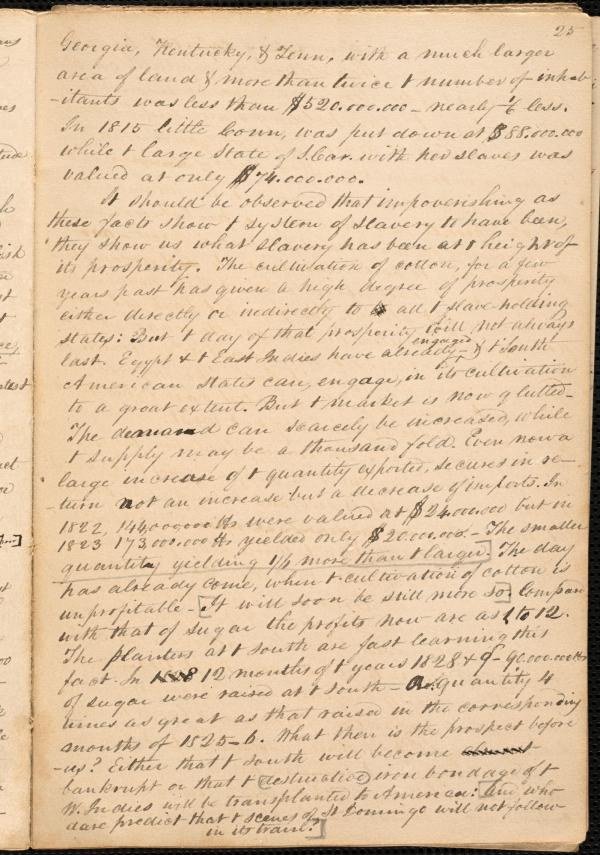 25
Georgia, Kentucky, & Tenn, with a much larger
area of land & more than twice t number of inhab-
-itants was less than $520.000.000 - nearly 1/6 less.
In 1815 little Conn, was put down at $88.000.000
while t large State of S. Car. with her slaves was
valued at only $74.000.000.
It should be observed that impoverishing as
these facts show t system of slavery to have been,
they show us what slavery has been at t height of
its prosperity. The cultivation of cotton, for a few
years past has given a high degree of prosperity
either directly or indirectly to all t slave-holding
states: But t day of that prosperity will not always
last. Egypt & t East Indies have already engaged - & t South
American states can, engage, in its cultivation
to a great extent. But t market is now glutted -
The demand can scarcely be increased, while
t supply may be a thousand fold. Even now a
large increase of t quantity exported, secures in re-
-turn not an increase but a decrease of imports. In
1822, 144,000000 lbs were valued at $24.000.000 but in
1823 173,000.000 lbs yielded only $20.000.000. - The smaller
quantity yielding 1/6 more than t larger. The day
has already come, when t cultivation of cotton is
unprofitable - [It will soon be still more so] Compar
with that of sugar the profits now are as 1 to 12.
The planters at t south are fast learning this
fact. In 12 months of t years 1828 & 9 - 90.000.000 lbs
of sugar were raised at t south - A quantity 4
times as great as that raised in the corresponding
months of 1825-6. What then is the prospect before
-us? Either that t south will become
bankrupt or that t destructive iron bondage of t
W. Indies will be transplanted to America: and who
dare predict that t scenes of St Domingo will not follow
in its train?]